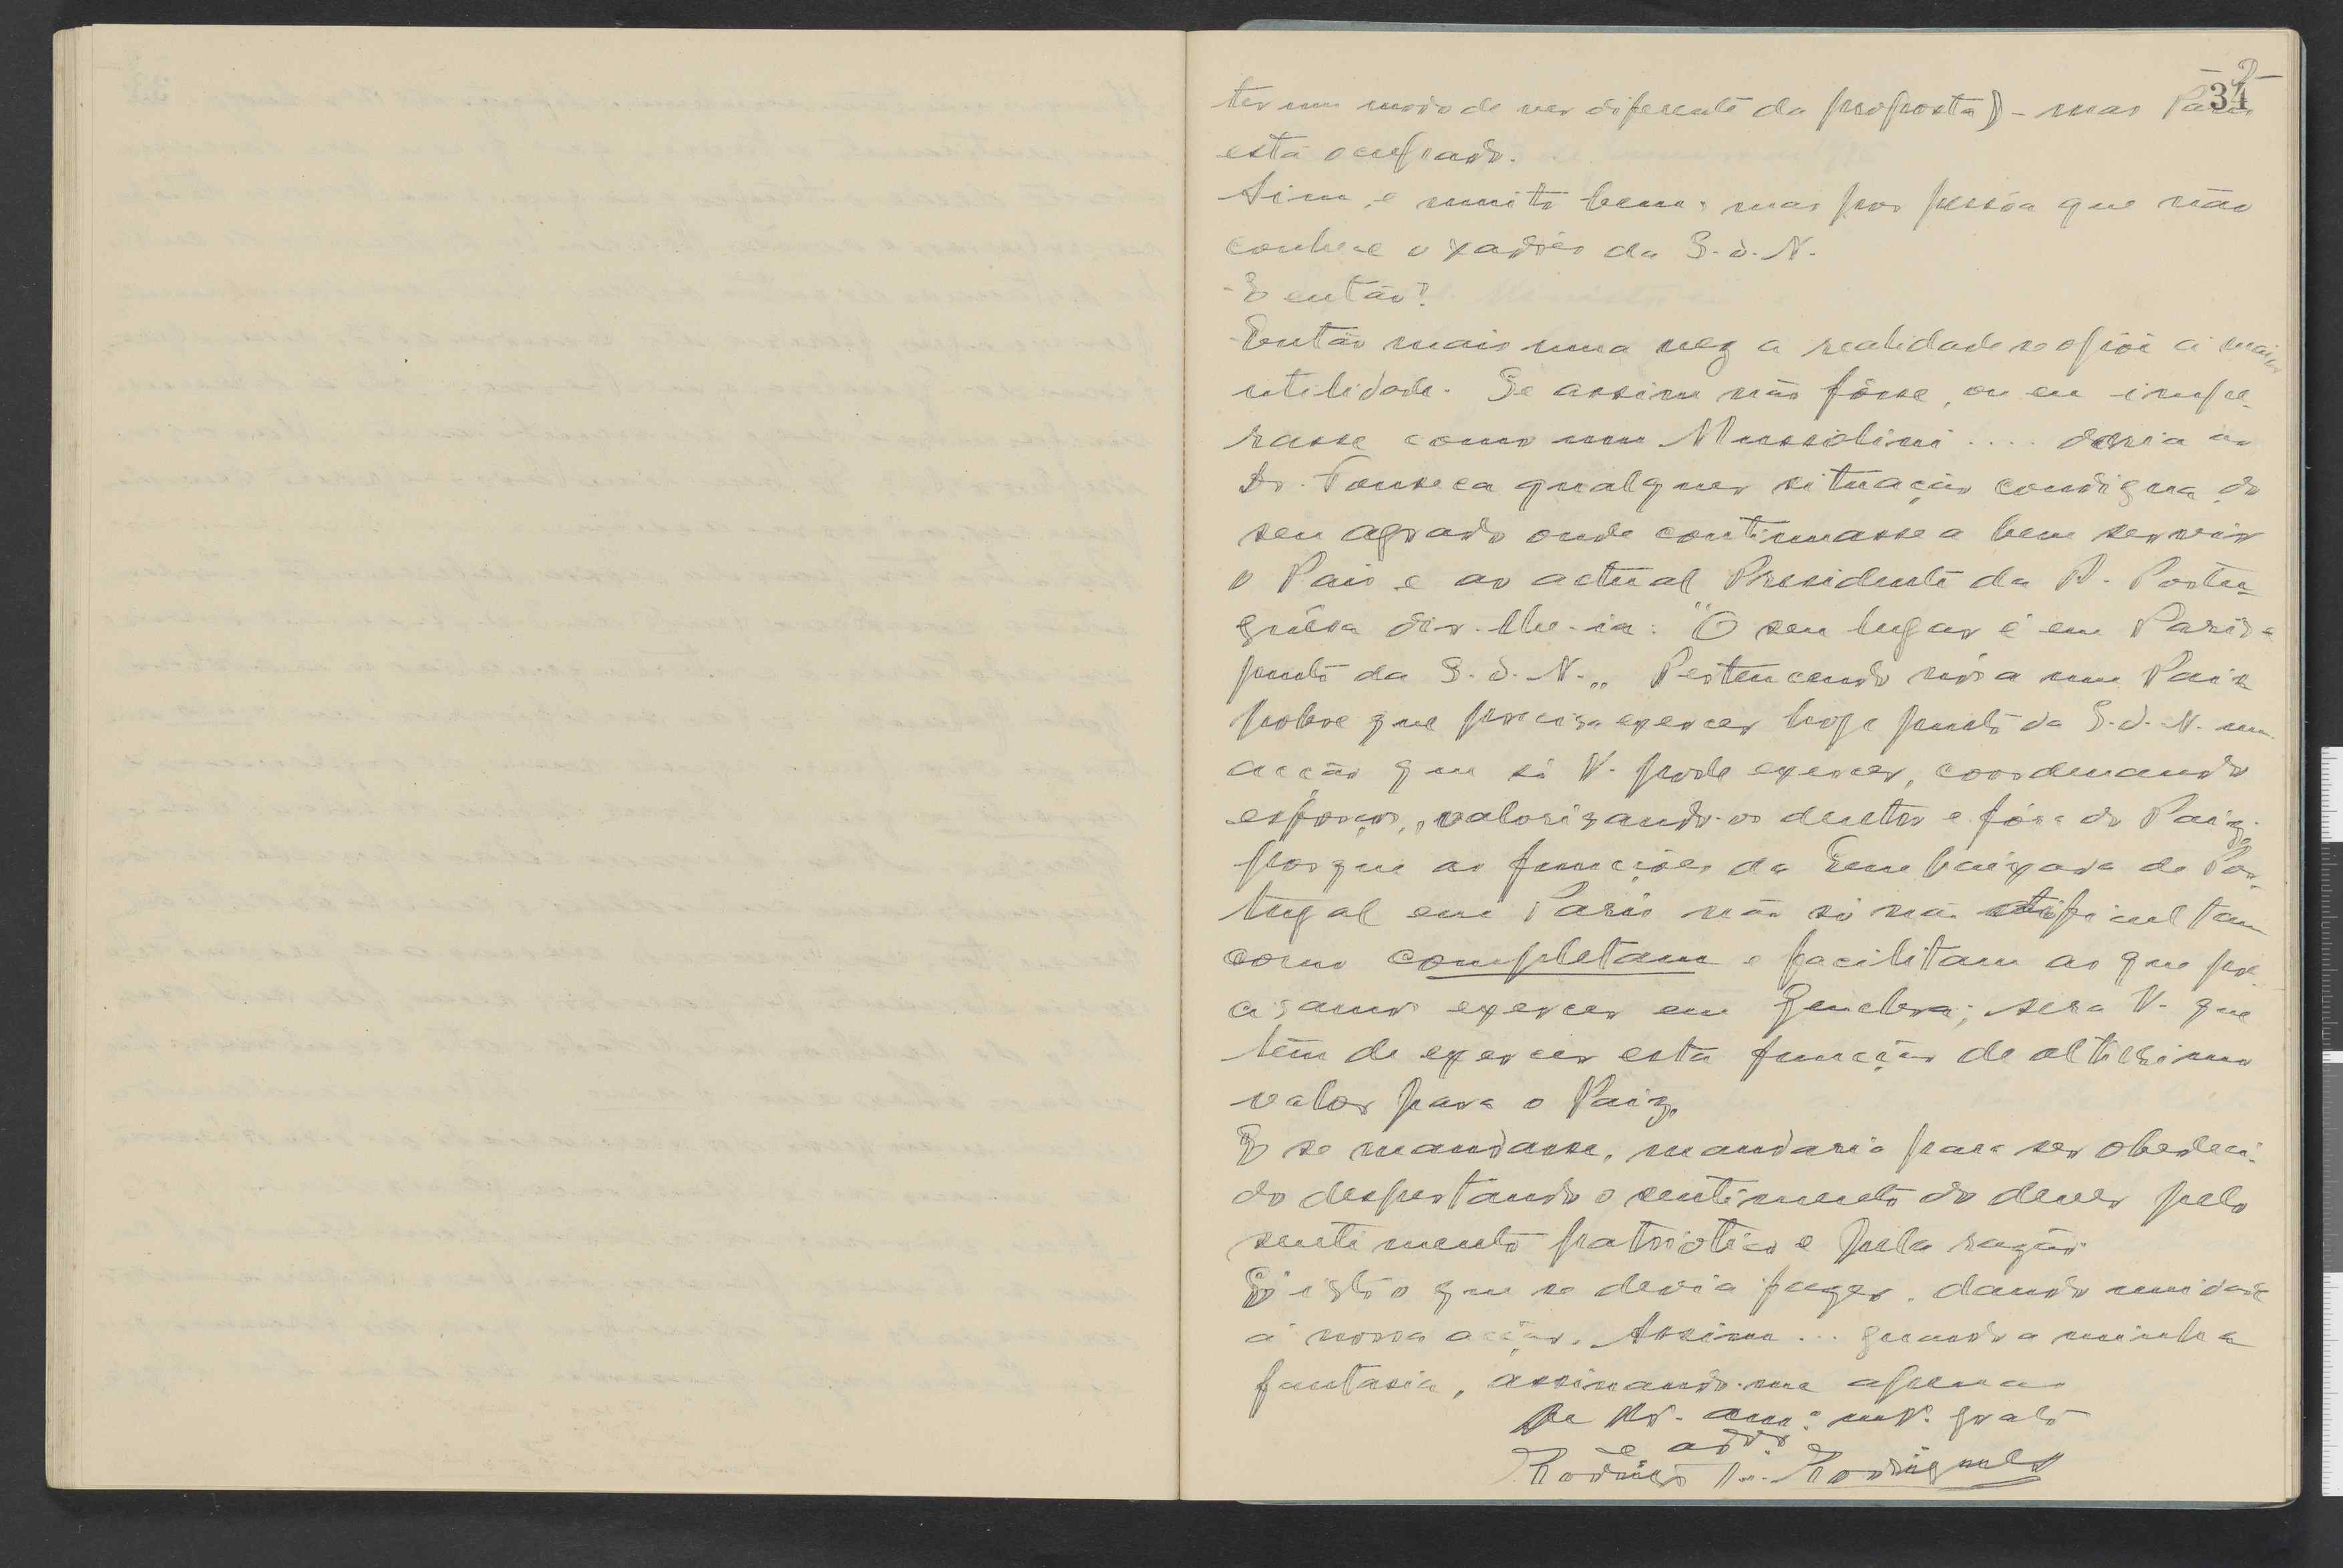 -2-
34
ter um modo de ver diferente da proposta) - mas Paris
está ocupado.
Sim, e muito bem; mas por pessôa que não
conhece o xadrês da S. d. N.
- E então?
- Então mais uma vez a realidade se opõi á maior
utilidade. Se assim não fôsse, ou eu impe-
rasse como um Mussolini .... daria ao
Dr. Fonseca qualquer situação condigna do
seu agrado onde continuasse a bem servir
o Pais e ao actual Presidente da R. Portu-
guêsa dir-lhe-ia: "O seu lugar é em Paris e
junto da S. d. N.„ Pertencendo nós a um Paiz
pobre que precisa exercer hoje junto da S. d. N. uma
acção que só V. pode exercer, coordenando
esforços, valorizando-os dentro e fóra do Paiz,
porque as funcções da Embaixada de Por-
tugal em Paris não só não dificultam
como completam e facilitam as que pre-
cisamos exercer em Genebra; será V. que
têm de exercer esta funcção de altissimo
valor para o Paiz.
E se mandasse, mandaria para ser obedeci-
do despertando o sentimento do dever pelo
sentimento patriotico e pela razão.
É isto o que se devia fazer, dando unidade
á nossa acção. Assim... guardo a minha
fantasia, assinando-me apenas
De V. am.º mt.º grato
e ad.or
Rodrigo J. Rodrigues